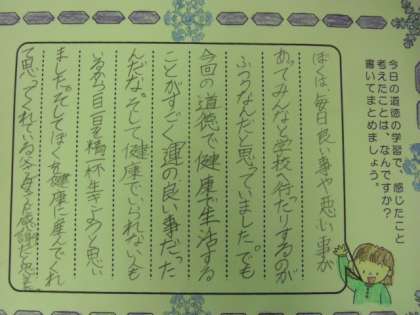 今日の道徳の学習で、感じたこと
考えたことは、なんですか？
書いてまとめましょう。
ぼくは、毎日良い事や悪い事が
あってみんなと学校へ行ったりするのが
ふつうなんだと思っていました。でも
今回の道徳で健康で生活する
ことがすごく運の良い事だった
んだな。そして健康でいられない人も
いるから日一日を精一杯生きようと思い
ました。そしてぼくを健康に産んでくれ
て思ってくれている父と母にも感謝だと思